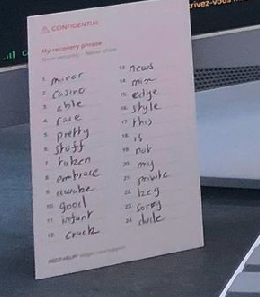 rivez-vous
CONFIDENTIAL
My recovery phrase
1. mirror
2. casino
3. able
4. race
5. pretty
6. stuff
7. token
8. embrace
9. awake
10. good
11. infant
12. crack
13. news
15. edge
16. style
17. this
18. is
19. not
20. my
21. private
22. key
23. sorry
24. dude